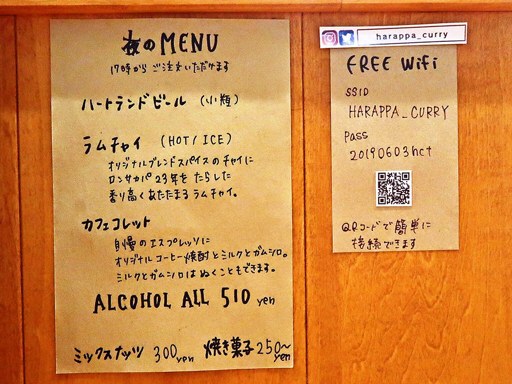 夜のMENU
17時から ご注文いただけます
ハートランドビール (小瓶)
ラムチャイ (HOT/ICE)
オリジナルブレンドスパイスのチャイに
ロンサカパ23年を たらした
香り高くあたたまる ラムチャイ。
カフェコレット
自慢のエスプレッソに
オリジナルコーヒー焼酎とミルクとガムシロ。
ミルクとガムシロはぬくこともできます。
ALCOHOL ALL 510 yen
ミックスナッツ 300yen 焼き菓子250〜yen
harappa_curry
FREE Wifi
SSID
HARAPPA_CURRY
Pass
20190603hct
QRコードで簡単に
接続できます